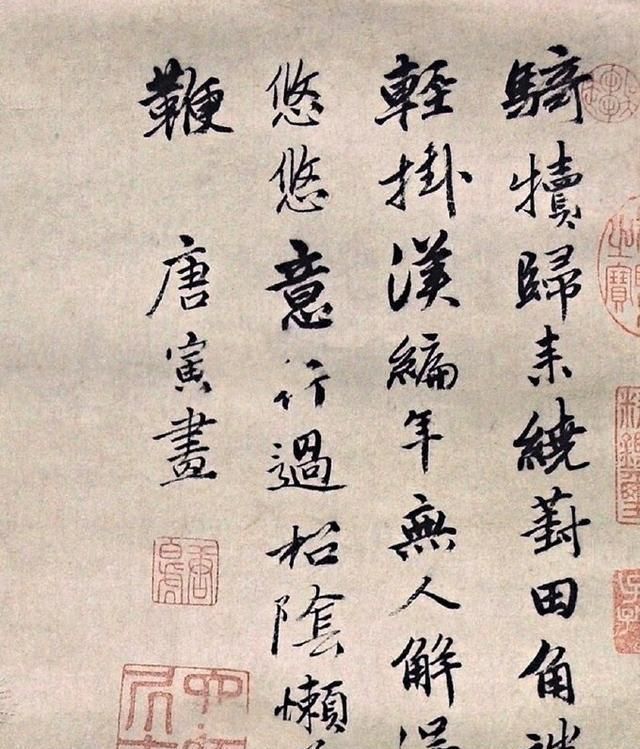 騎犢歸来繞葑田角端
輕掛漢編年無人解得
悠悠意行過松陰懶著
鞭
唐寅畫